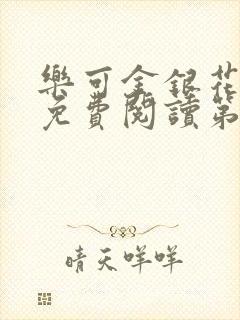 樂可金銀花
免費閱讀第
晴天咩咩